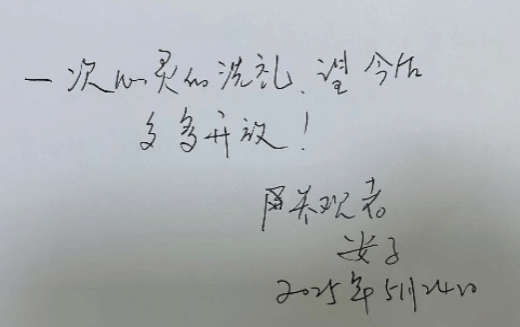 一次心灵的洗礼、望今后
多多开放！
观者
安子
2025年5月24日